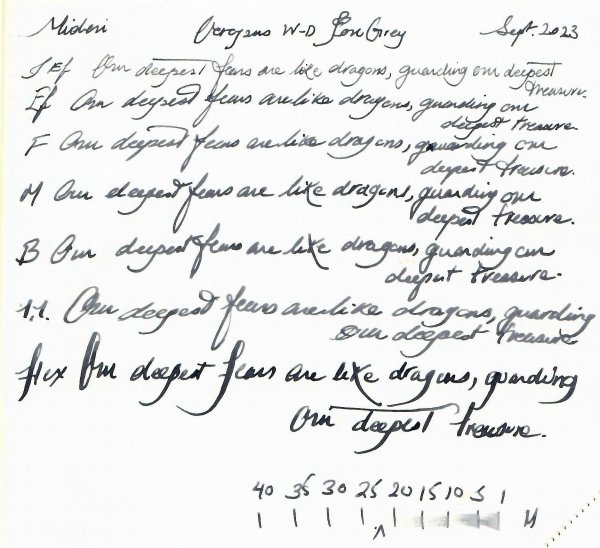 Midori Octopus W-D Iron Grey Sept. 2023
J Ef Our deepest fears are like dragons, guarding our deepest
treasure.
Ef Our deepest fears are like dragons, guarding our
deepest treasure.
F Our deepest fears are like dragons, guarding our
deepest treasure.
M Our deepest fears are like dragons, guarding our
deepest treasure.
B Our deepest fears are like dragons, guarding our
deepest treasure.
1.1. Our deepest fears are like dragons, guarding
Our deepest treasure
flex Our deepest fears are like dragons, guarding
Our deepest treasure.
40 35 30 25 20 15 10 5 1
M